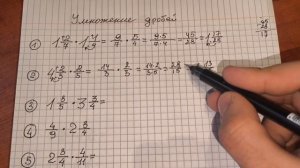 Умножение дробей
① 1 2/7 · 1 1/4 = 9/7 · 5/4 = 9·5/7·4 = 45/28 = 1 17/28
② 4 2/3 · 2/5 = 14/3 · 2/5 = 14·2/3·5 = 28/15 = 1 13
③ 1 3/5 · 3 3/4 =
④ 4/9 · 2 3/4
⑤ 2 3/4 · 4/11 =